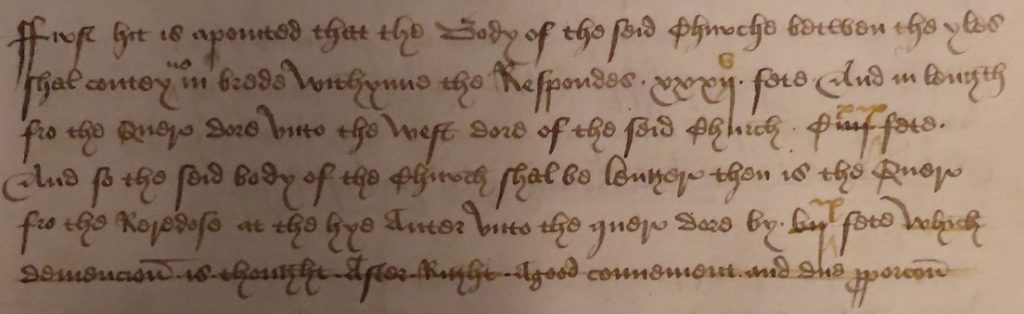 ffirst hit is apointed that the Body of the seid Chirche betwen the yles
shal conteyn in brede withynne the Respondes · xxxij · fete · And in length
fro the Quer dore vnto the west dore of the seid Chirch · fete ·
And so the seid body of the Chirch shal be lenger then is the Quer
fro the Reredose at the hye Auter vnto the quer dore by · fete which
demencion is thought After Right A good conuenient and due